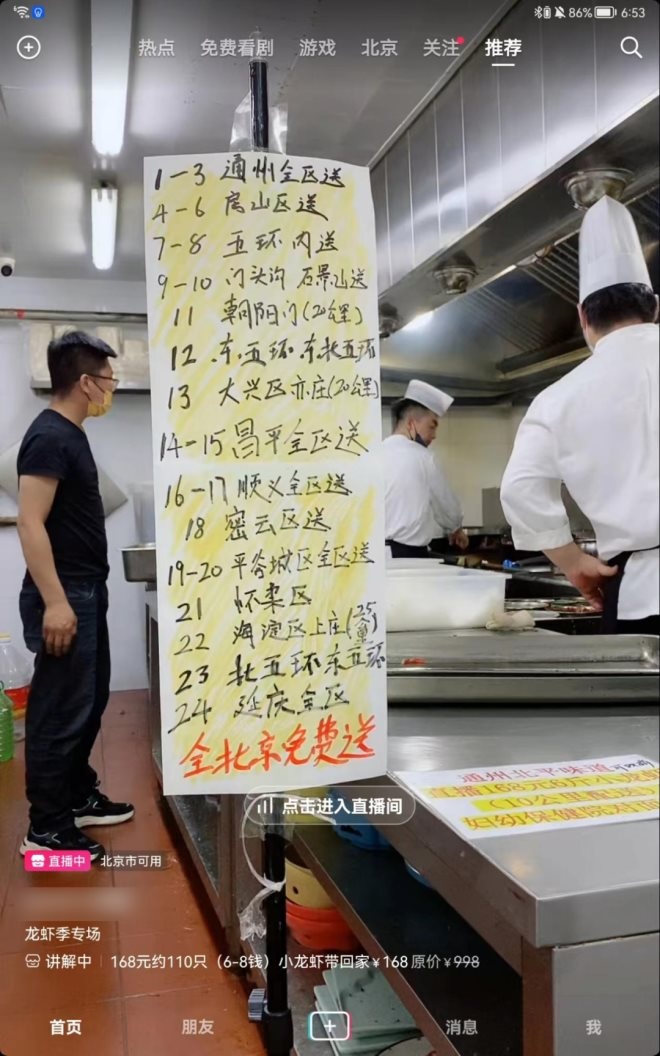 86% 6:53
热点 免费看剧 游戏 北京 关注 推荐
1-3 通州全区送
4-6 房山区送
7-8 五环内送
9-10 门头沟 石景山送
11 朝阳门(20公里)
12 东五环·东北五环
13 大兴区亦庄(20公里)
14-15 昌平全区送
16-17 顺义全区送
18 密云区送
19-20 平谷城区全区送
21 怀柔区
22 海淀区上庄(25公里)
23 北五环东五环
24 延庆全区
全北京免费送
通州北平味道
直播168元6斤
(10公
妇幼保健院对面
点击进入直播间
直播中 北京市可用
龙虾季专场
讲解中 168元约110只（6-8钱）小龙虾带回家¥168 原价¥998
首页 朋友 消息 我